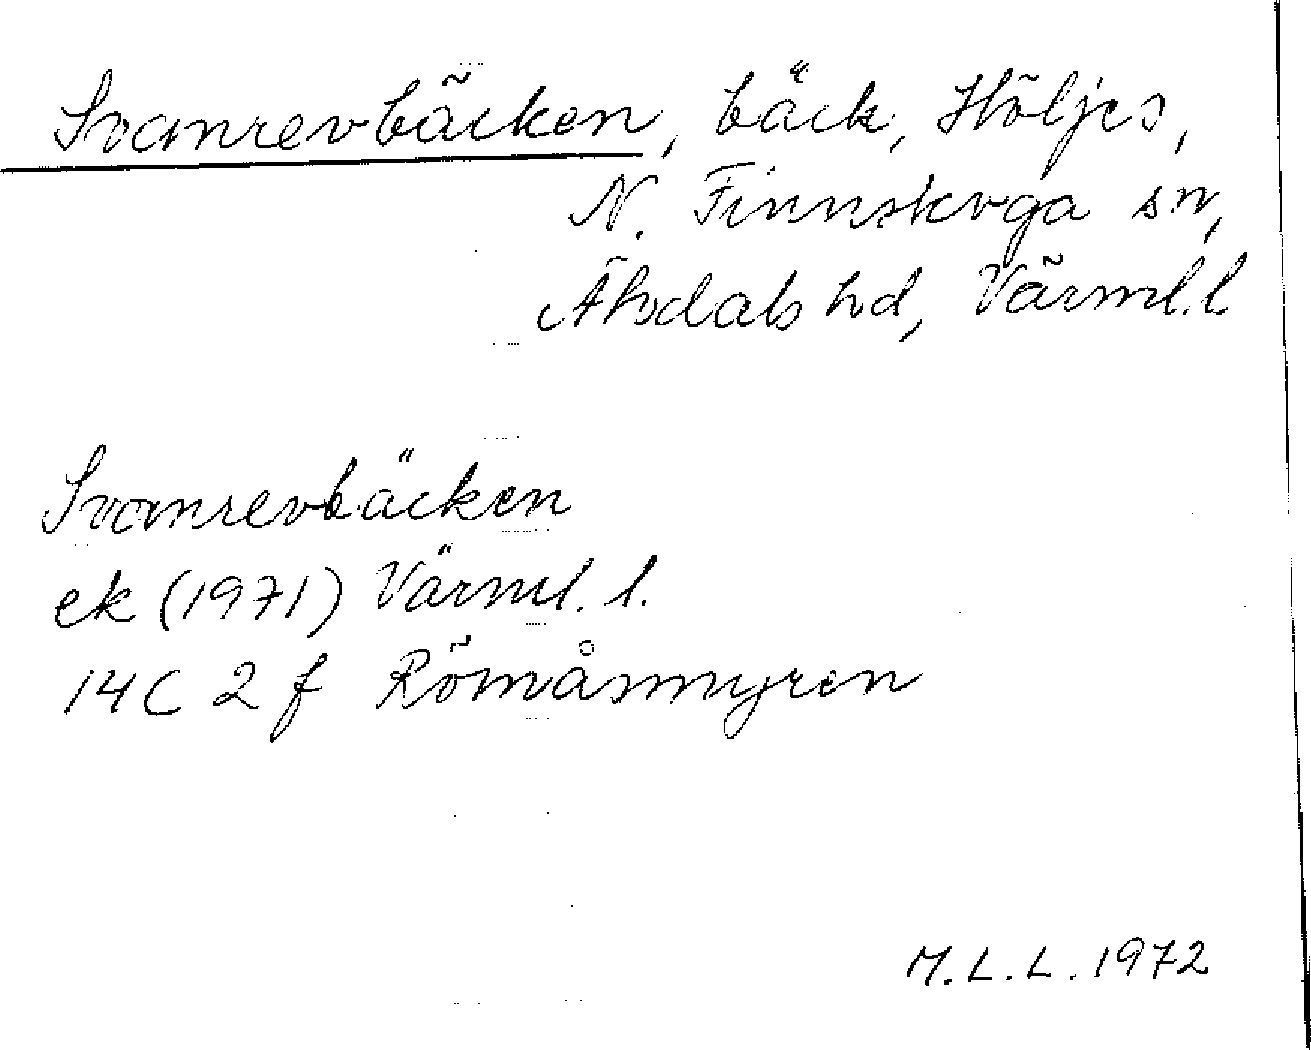 Svanrevbäcken, bäck, Höljes,
N. Finnskoga sn,
Älvdals hd, Värml. l
Svanrevbäcken
ek (1971) Värml. l.
14C 2 f Römåsmyren
M. L. L. 1972